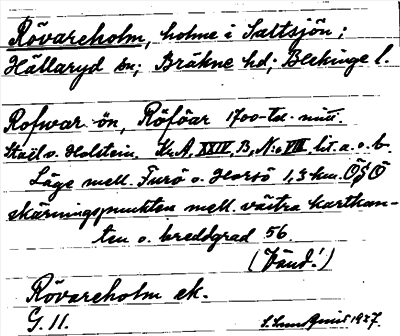 Rövareholm, holme i Saltsjön;
Hällaryd sn; Bräkne hd; Blekinge l.
Rofwar ön, Röföar 1700-tal. mitt.
Staël v. Holstein. Kr.A. XXIV, B, N:o VIII. lit. a. o. b.
Läge mell. Turö o. Horsö 1,3 km. ÖSÖ
skärningspunkten mell. västra kartkan-
ten o. breddgrad 56.
(Vänd!)
Rövareholm ek.
G. 11.
1927.